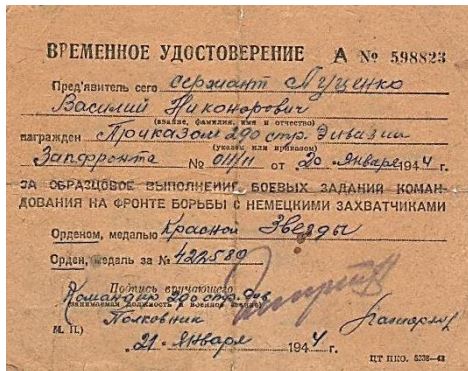 ВРЕМЕННОЕ УДОСТОВЕРЕНИЕ А № 598823
Пред'явитель сего сержант Луценко
Василий Никонорович
(звание, фамилия, имя и отчество)
награжден Приказом 290 стр. Дивизии
(указом или приказом)
Запфронта № 011/н от 20 января 1944 г.
ЗА ОБРАЗЦОВОЕ ВЫПОЛНЕНИЕ БОЕВЫХ ЗАДАНИЙ КОМАН-
ДОВАНИЯ НА ФРОНТЕ БОРЬБЫ С НЕМЕЦКИМИ ЗАХВАТЧИКАМИ
Орденом, медалью Красной Звезды
Орден, медаль за № 422589
Подпись вручающего
Командир 290 стр. див
(занимаемая должность и военное звание)
Полковник
М. П.
21 января 1944 г.
ЦТ НКО.